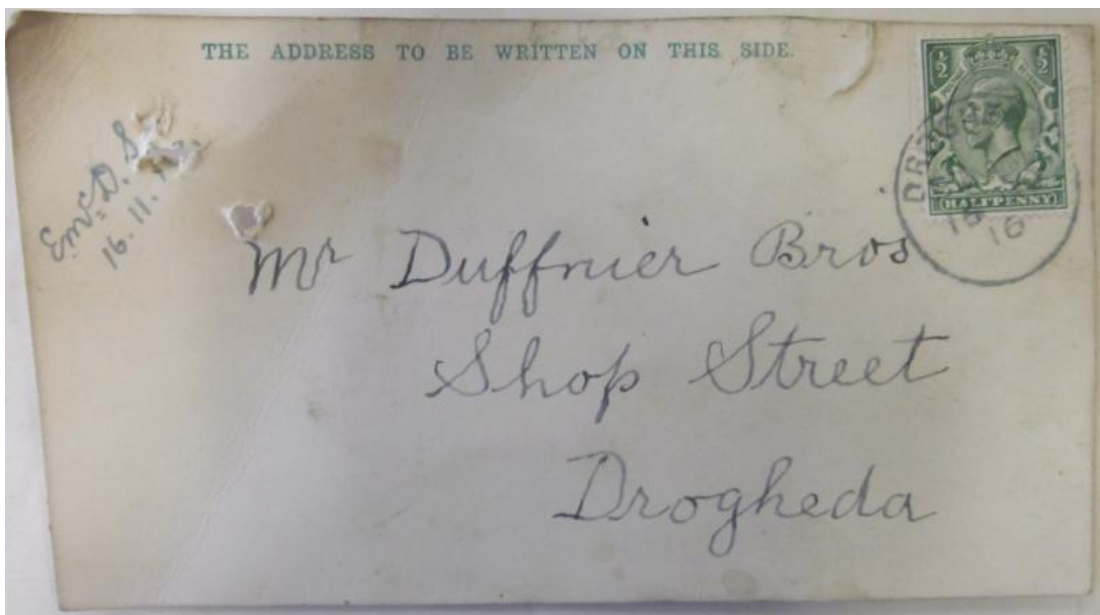 THE ADDRESS TO BE WRITTEN ON THIS SIDE.
½ ½
HALFPENNY
16
16.11.
Mr Duffnier Bros
Shop Street
Drogheda